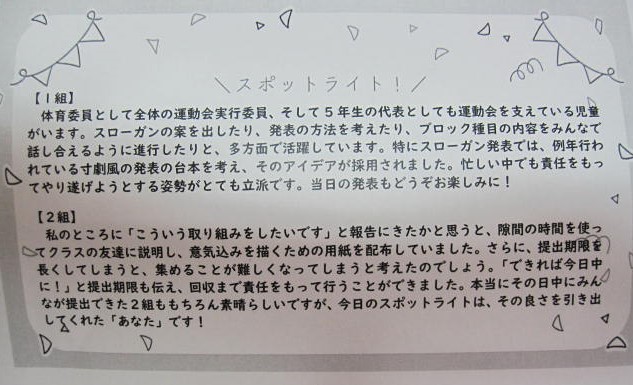 ＼スポットライト！／
【１組】
体育委員として全体の運動会実行委員、そして５年生の代表としても運動会を支えている児童
がいます。スローガンの案を出したり、発表の方法を考えたり、ブロック種目の内容をみんなで
話し合えるように進行したりと、多方面で活躍しています。特にスローガン発表では、例年行わ
れている寸劇風の発表の台本を考え、そのアイデアが採用されました。忙しい中でも責任をもっ
てやり遂げようとする姿勢がとても立派です。当日の発表もどうぞお楽しみに！
【２組】
私のところに「こういう取り組みをしたいです」と報告にきたかと思うと、隙間の時間を使っ
てクラスの友達に説明し、意気込みを描くための用紙を配布していました。さらに、提出期限を
長くしてしまうと、集めることが難しくなってしまうと考えたのでしょう。「できれば今日中
に！」と提出期限も伝え、回収まで責任をもって行うことができました。本当にその日中にみん
なが提出できた２組ももちろん素晴らしいですが、今日のスポットライトは、その良さを引き出
してくれた「あなた」です！